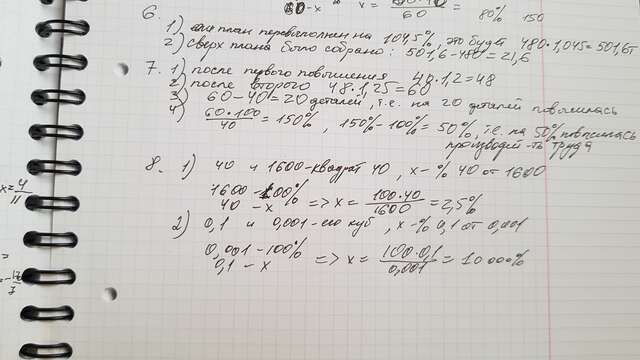 60-x
x = 60·40/60 =
80% 150
6.
1) если план перевыполнен на 104,5%, это будет 480·1,045=501,6т
2) сверх плана было собрано: 501,6-480=21,6
7. 1) после первого повышения 40·1,2=48
2) после второго 48·1,25=60
3) 60-40=20 деталей, т.е. на 20 деталей повысилась
4) 60·100/40 = 150%, 150%-100%=50%, т.е. на 50% повысилась
производ-ть труда
8. 1) 40 и 1600-квадрат 40, x-% 40 от 1600
1600-100%
40-x => x = 100·40/1600 = 2,5%
2) 0,1 и 0,001-его куб, x-% 0,1 от 0,001
0,001-100%
0,1-x => x = 100·0,1/0,001 = 10 000%
x=4/11
=
=-17/7